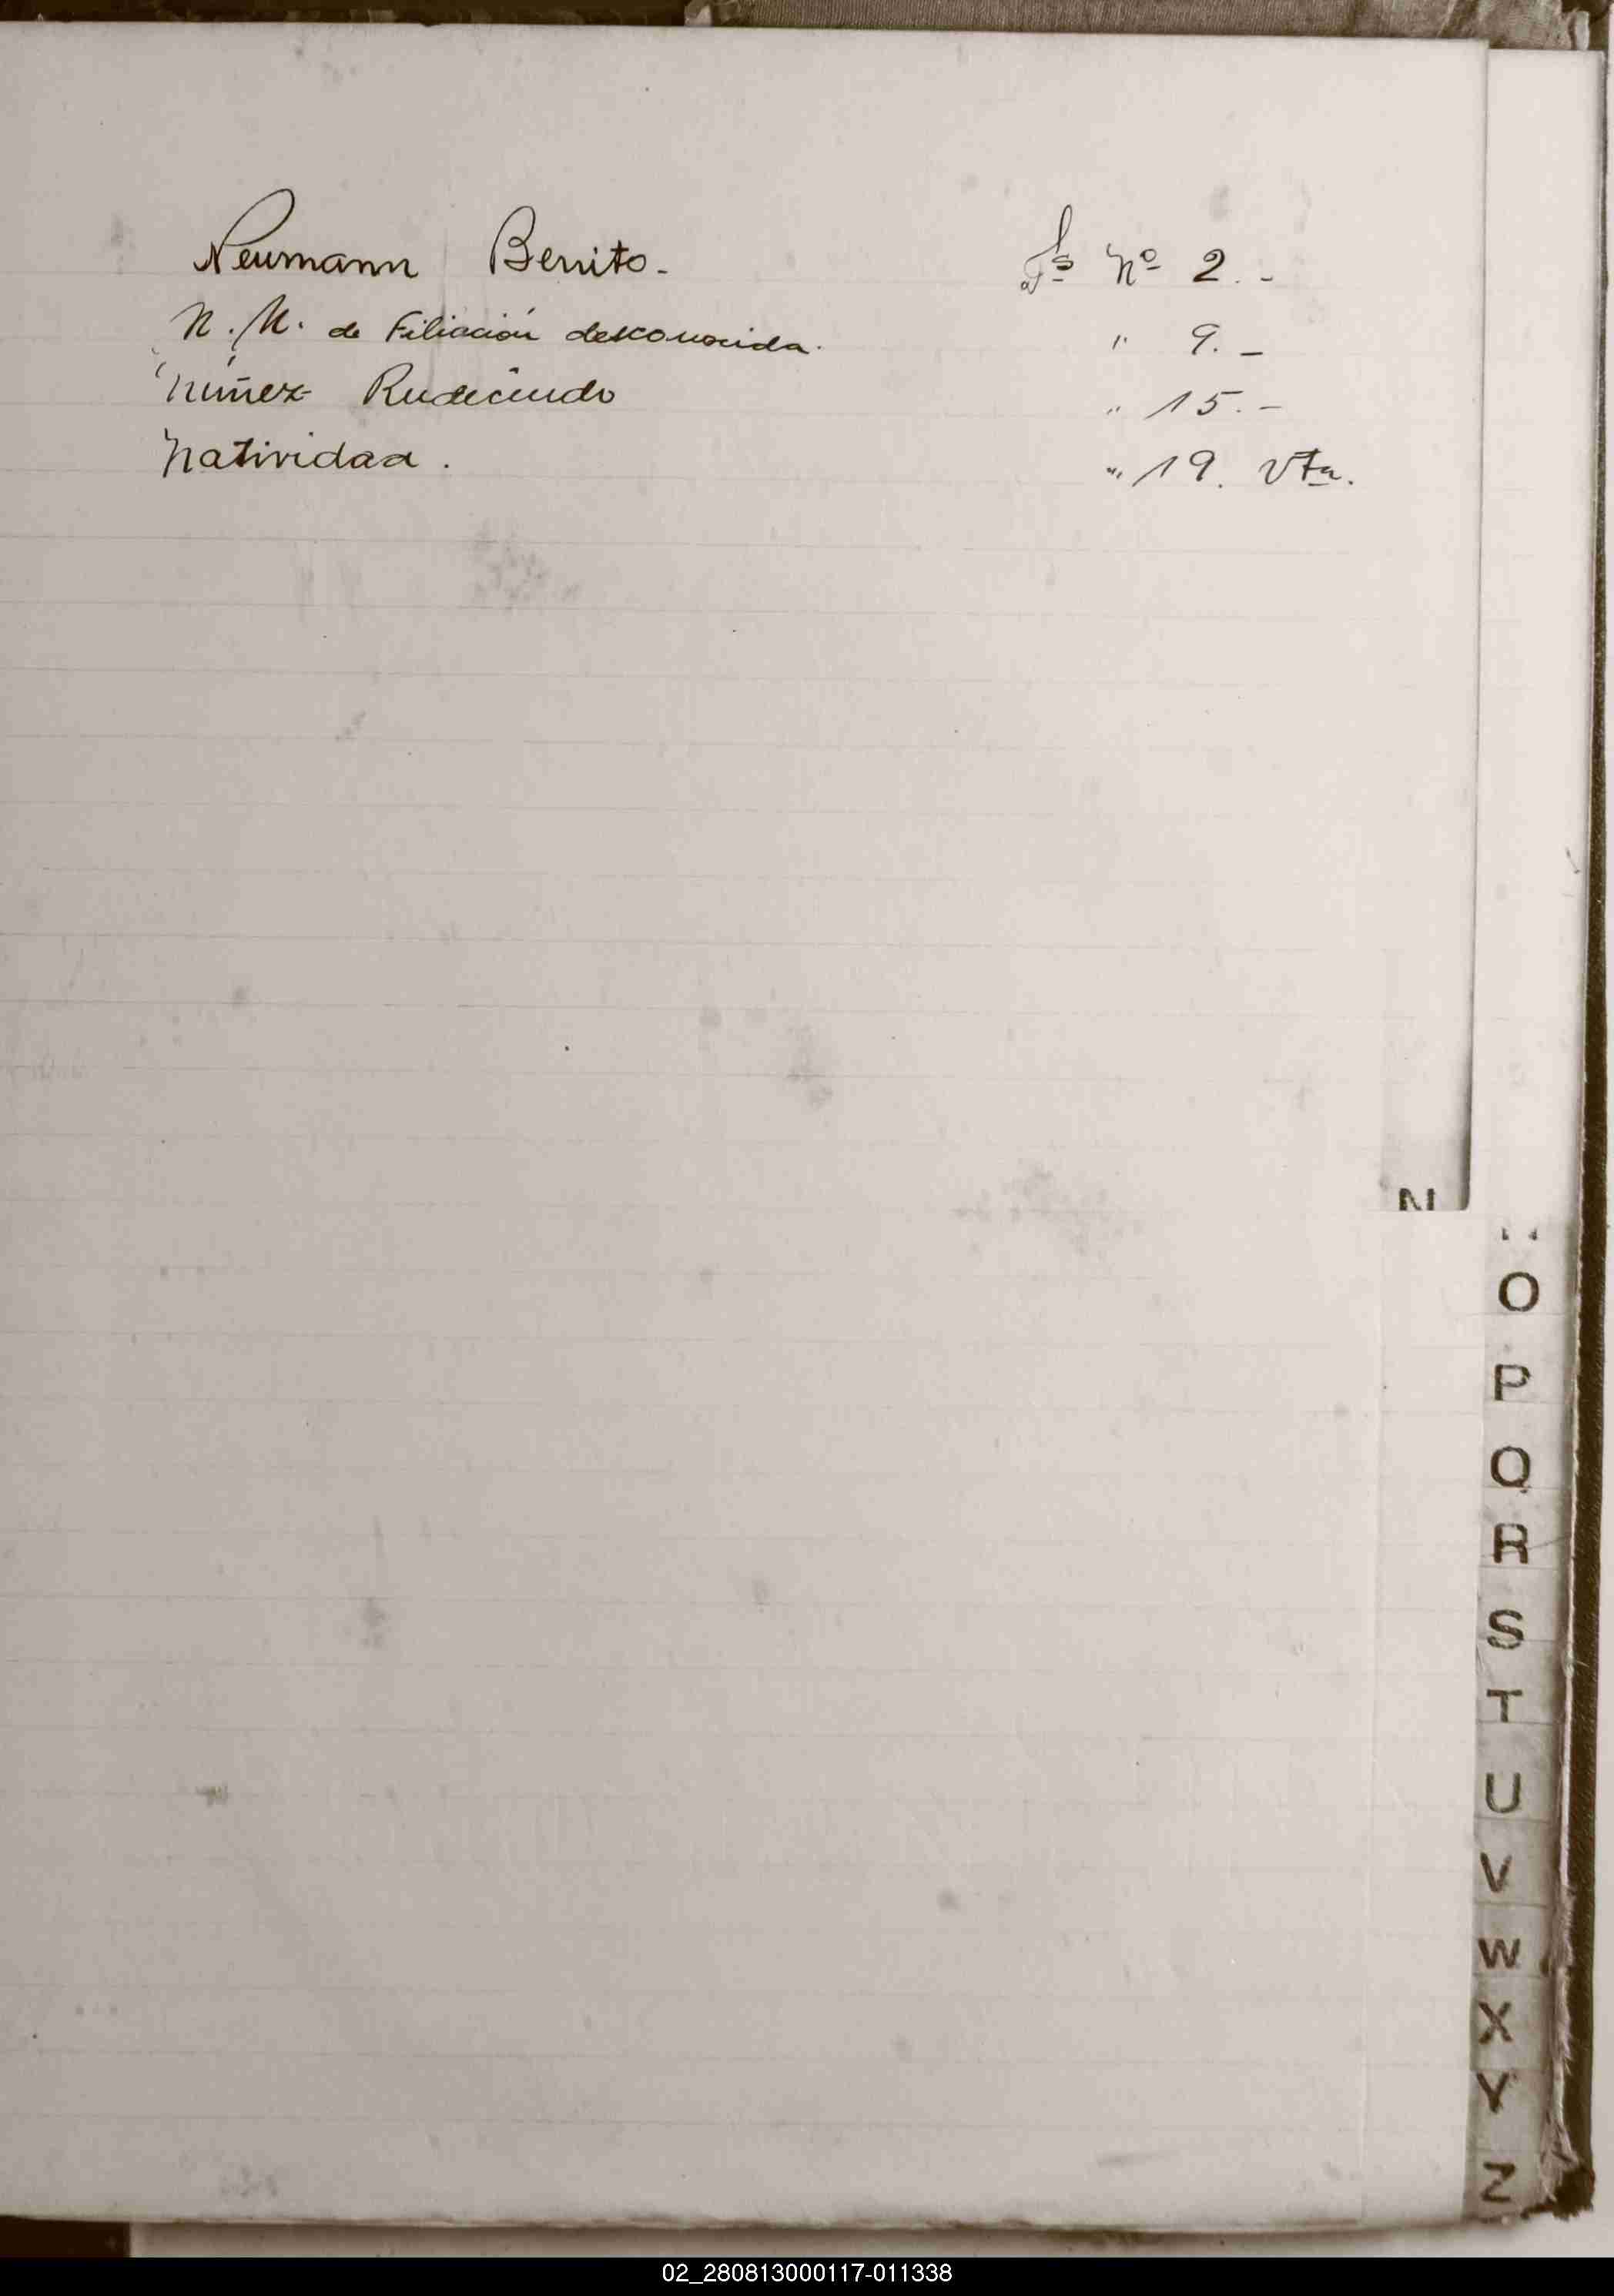 Neumann Benito. Fs Nº 2.-
N. N. de Filiación desconocida. " 9.-
Núñez Rudecindo " 15.-
Natividad. " 19. Vta.
N
O
P
Q
R
S
T
U
V
W
X
Y
Z
02_280813000117-011338